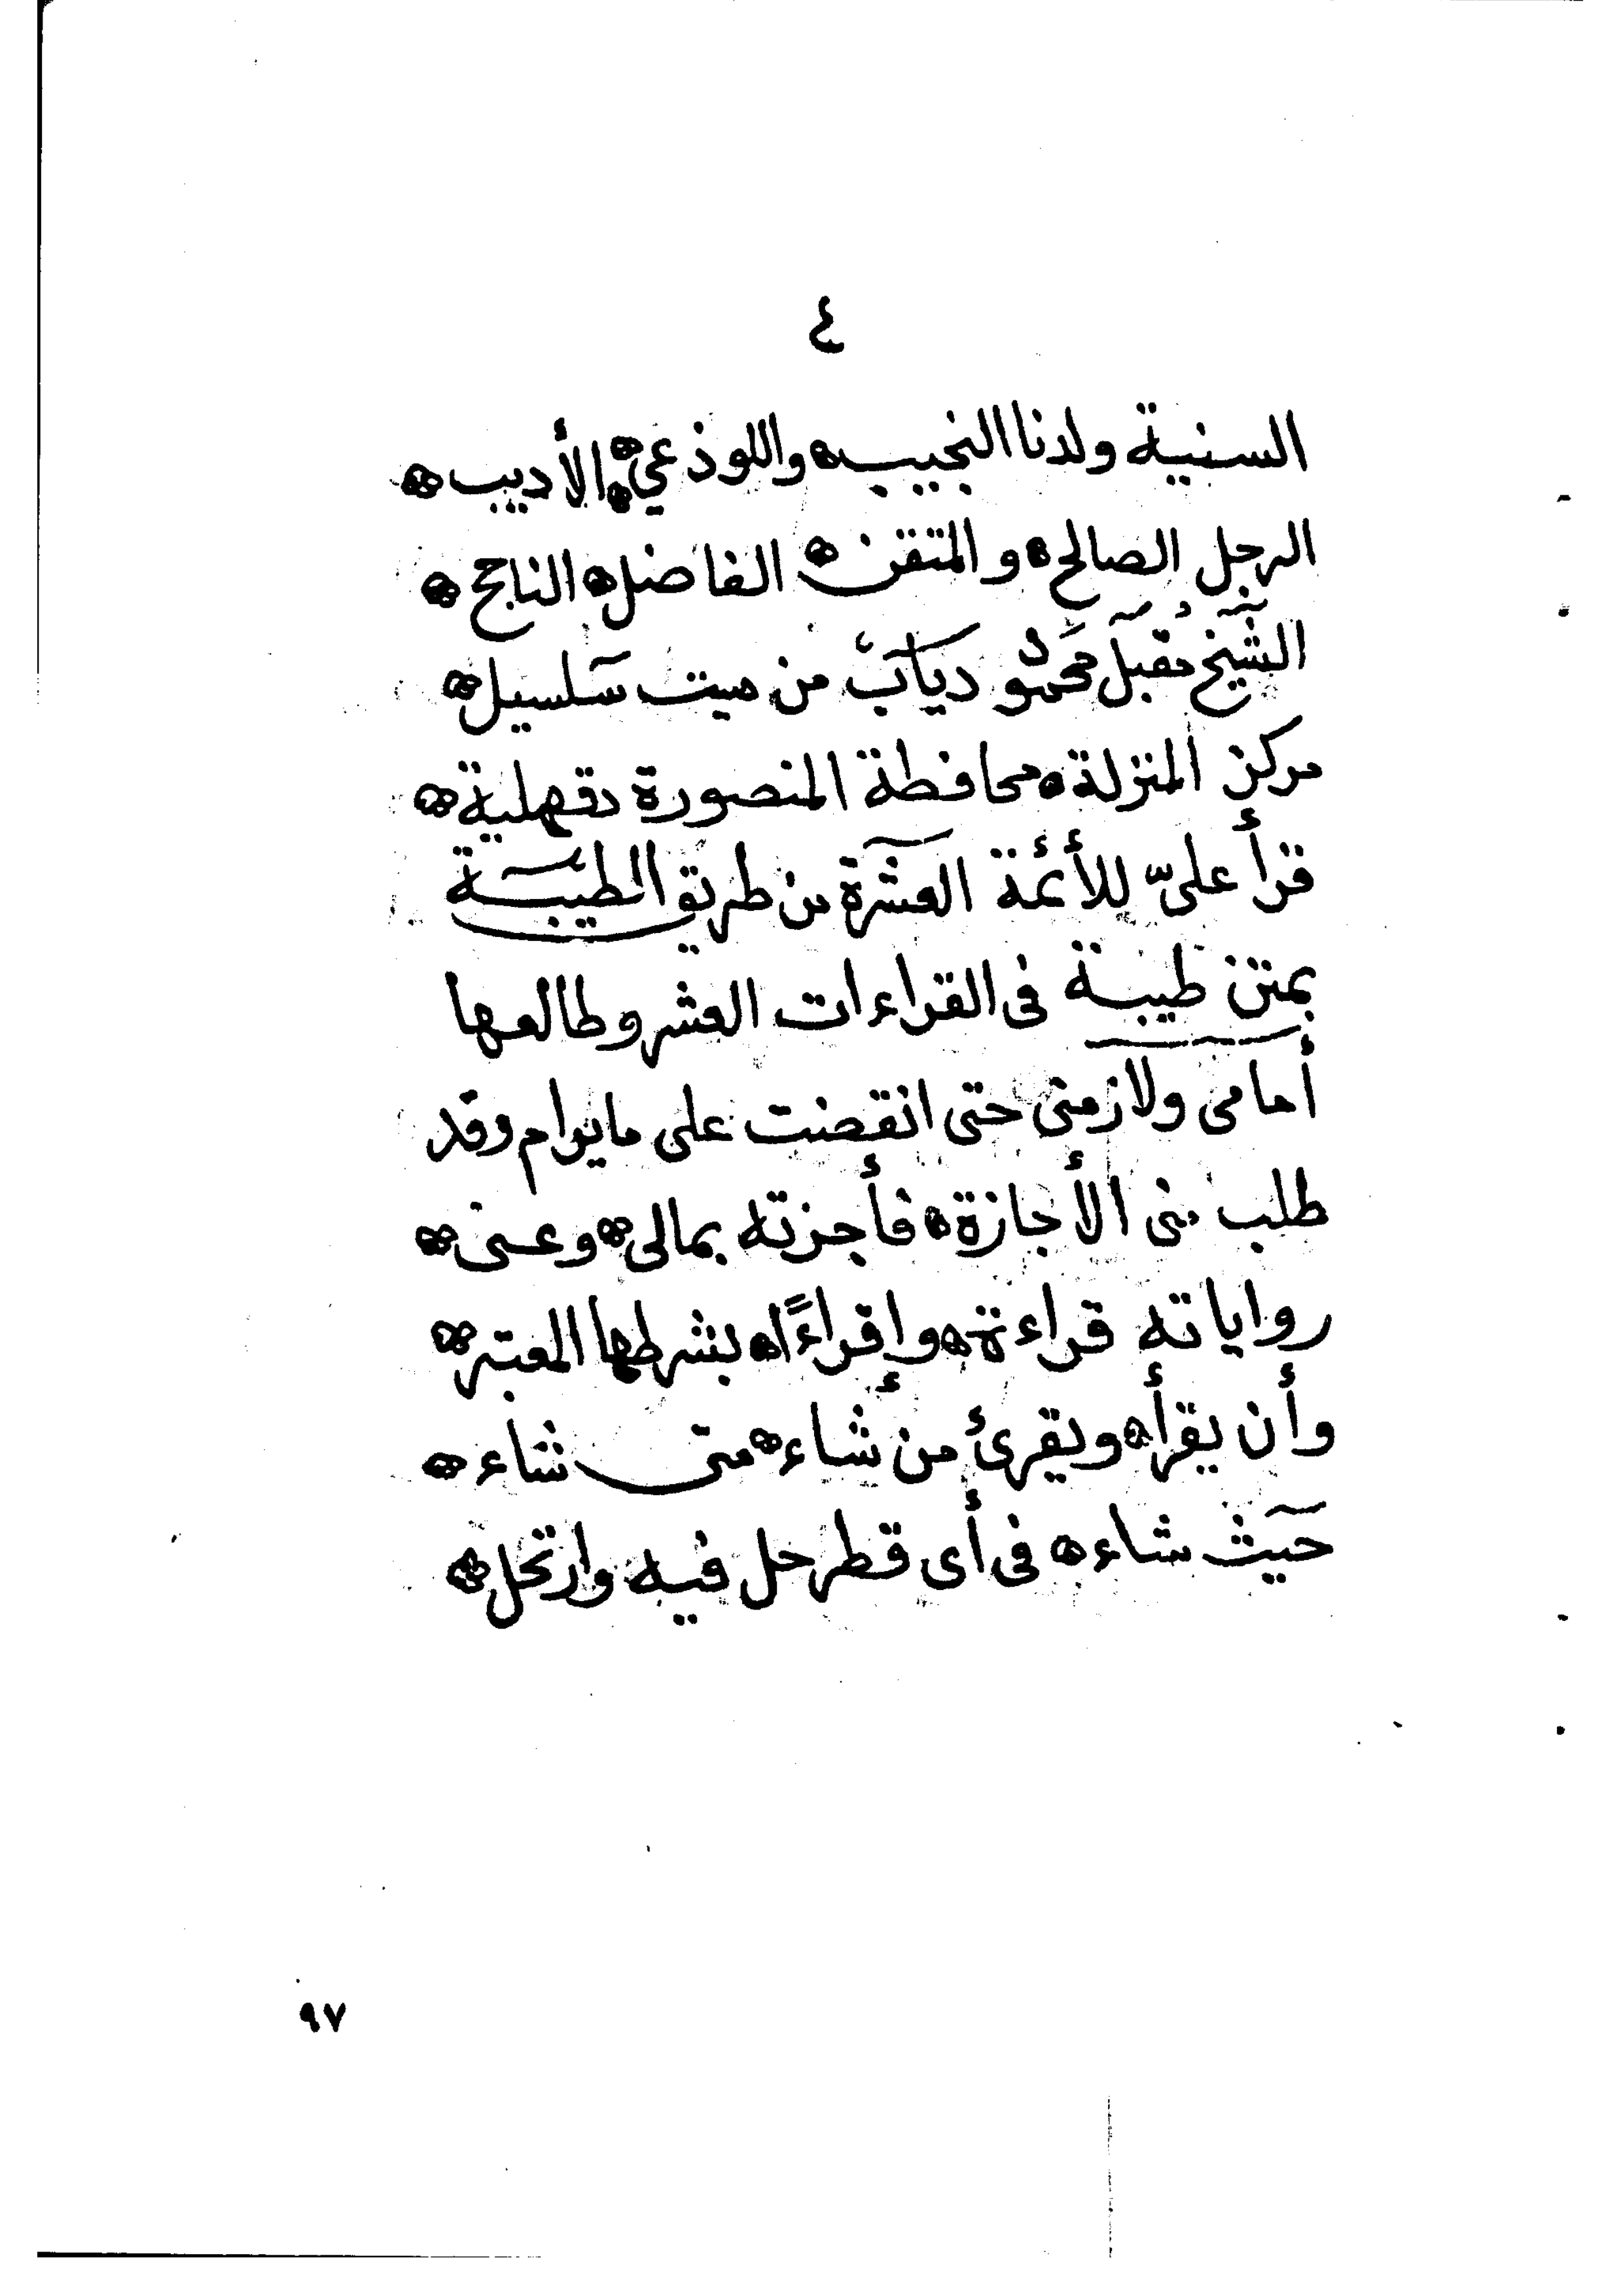 ٤
السنية ولدنا النجيب واللوذعي الأديب
الرجل الصالح والمتقن الفاضل الناجح
الشيخ مقبل محمود دياب من ميت سلسيل
مركز المنزلة محافظة المنصورة دقهلية
قرأ علىّ للأئمة العشرة من طريق الطيبة
بمتن طيبة فى القراءات العشر وطالعها
أمامى ولازمنى حتى انقضت على مايرام وقد
طلب منى الأجازة فأجزته بمالى وعنى
رواياته قراءة وإقراءًا بشرطها المعتبر
وأن يقرأ ويقرئ من شاء متى شاء
حيث شاء فى أى قطر حل فيه وارتحل
٩٧